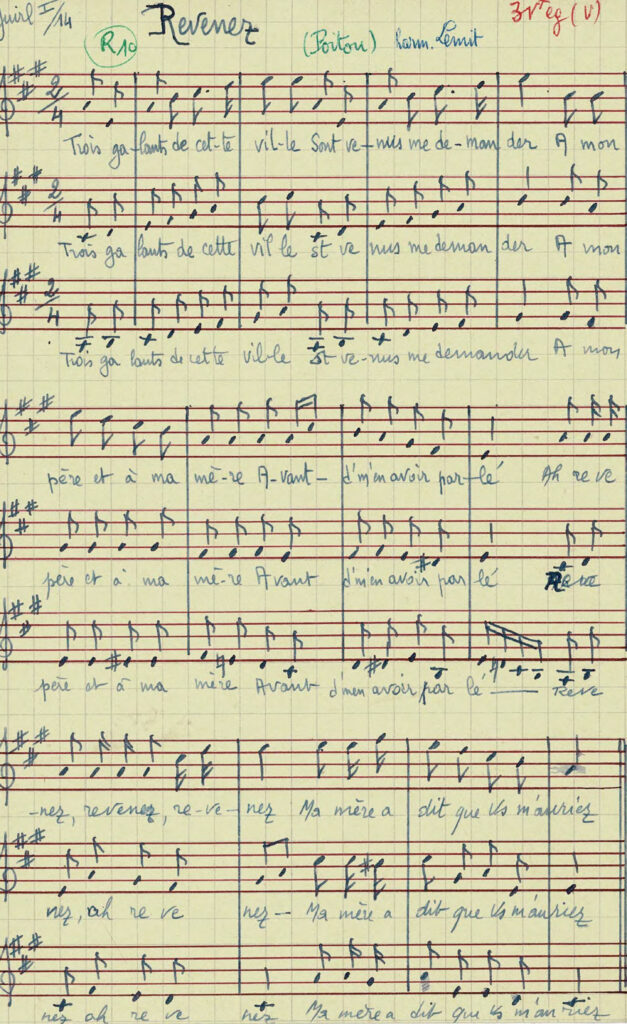 I/14
Revenez
3 Vx eg (V)
R10
(Poitou)
harm. Lemit
2/4
Trois ga-lants de cet-te vil-le Sont ve-nus me de-man der A mon
2/4
Trois ga lants de cette vil le st ve nus me deman der A mon
2/4
Trois ga lants de cette vil-le St ve-nus me demander A mon
père et à ma mè-re A-vant- d'm'en avoir par-lé Ah re ve
père et à ma mè-re Avant d'm'en avoir par lé Reve
père et à ma mère Avant d'm'en avoir par lé — Reve
-nez, revenez, re-ve-nez Ma mère a dit que Vs m'auriez
nez, ah re ve nez-- Ma mère a dit que Vs m'auriez
nez ah re ve nez Ma mère a dit que Vs m'auriez